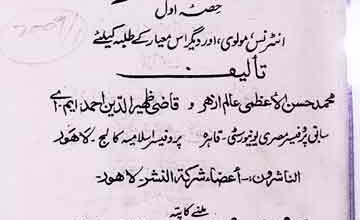 حصہ اول
انٹرنس، مولوی، اور دیگر اس معیار کے طلبہ کیلئے
تألیف
محمد حسن الاعظمی عالم ازھر و قاضی ظہیر الدین احمد ایم۔ اے
سابق پروفیسر مصری یونیورسٹی۔ قاہرہ پروفیسر اسلامیہ کالج۔ لاھور
الناشرون:۔ أعضاء شرکة النشر۔ لاھور۔
ملنے کا پتہ